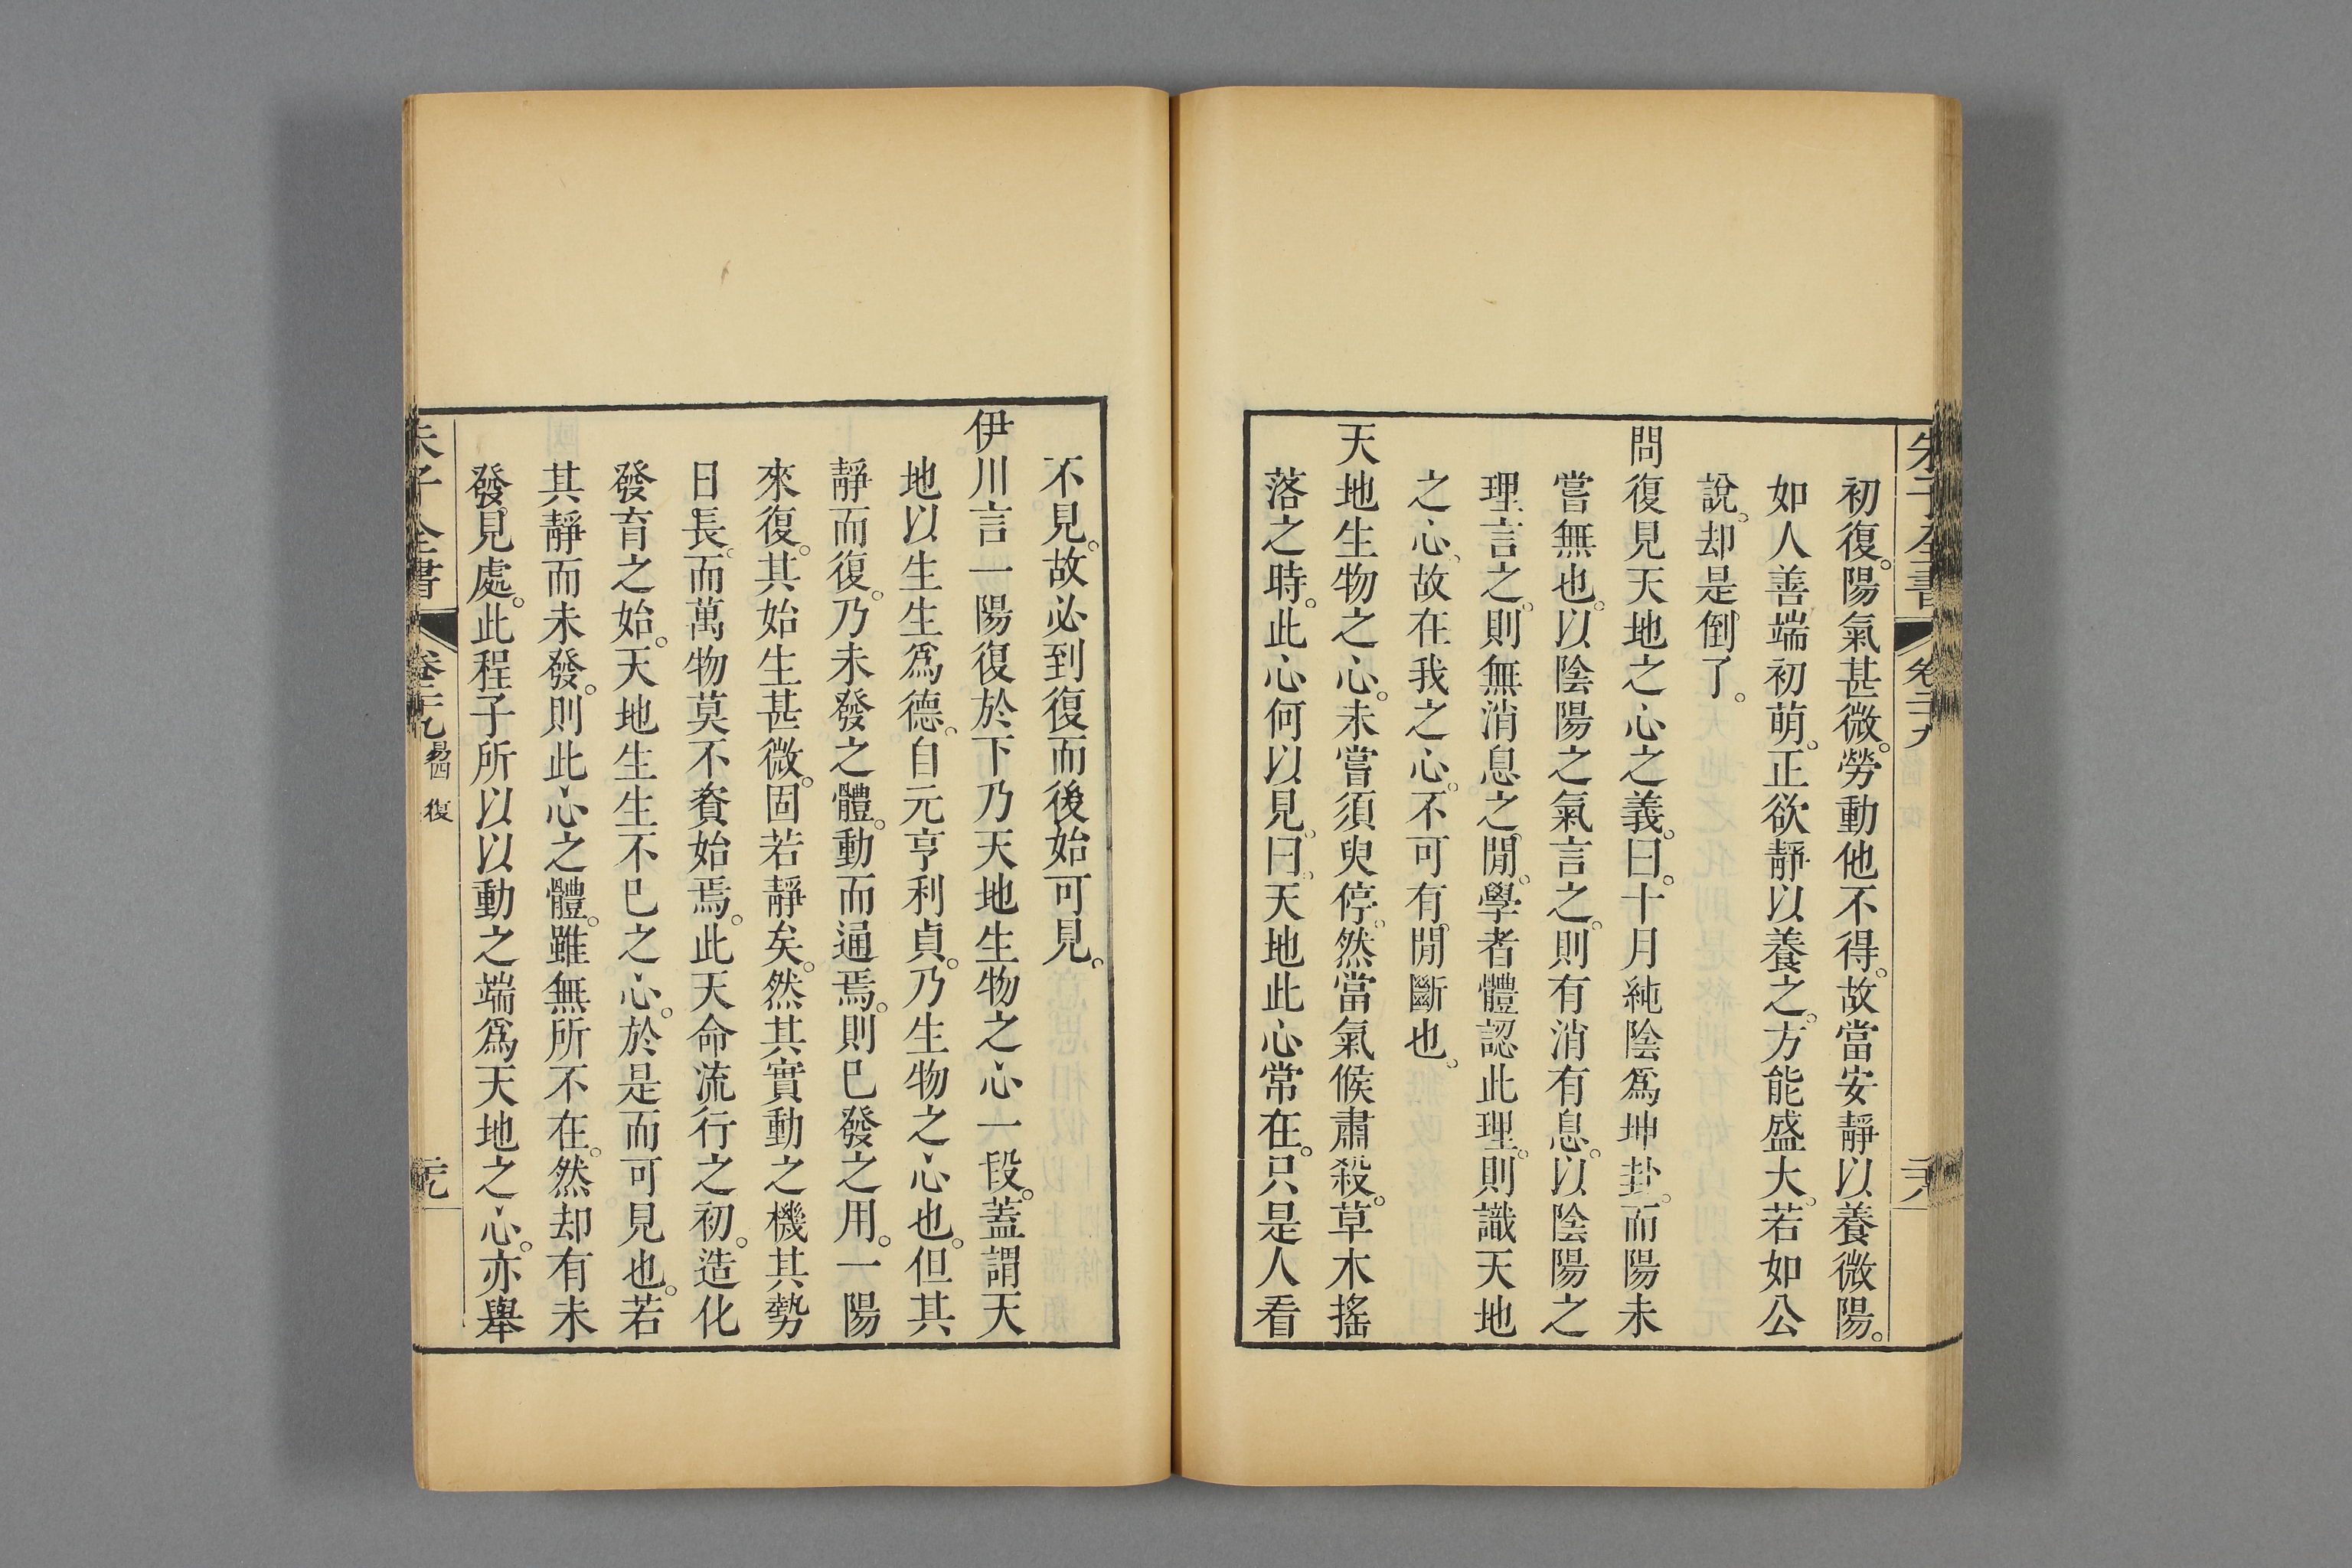 朱子全書 卷二十九 二十八
初復。陽氣甚微。勞動他不得。故當安靜以養微陽。
如人善端初萌。正欲靜以養之。方能盛大。若如公
說。却是倒了。
問復見天地之心之義。曰。十月純陰爲坤卦。而陽未
嘗無也。以陰陽之氣言之。則有消有息。以陰陽之
理言之。則無消息之閒。學者體認此理。則識天地
之心。故在我之心。不可有閒斷也。
天地生物之心。未嘗須臾停。然當氣候肅殺。草木搖
落之時。此心何以見。曰。天地此心常在。只是人看
不見。故必到復而後始可見。
伊川言一陽復於下乃天地生物之心一段。蓋謂天
地以生生爲德。自元亨利貞。乃生物之心也。但其
靜而復。乃未發之體。動而通焉。則已發之用。一陽
來復。其始生甚微。固若靜矣。然其實動之機其勢
日長。而萬物莫不資始焉。此天命流行之初。造化
發育之始。天地生生不已之心。於是而可見也。若
其靜而未發。則此心之體。雖無所不在。然却有未
發見處。此程子所以以動之端爲天地之心。亦舉
朱子全書 卷二十九 易四 復 二十九